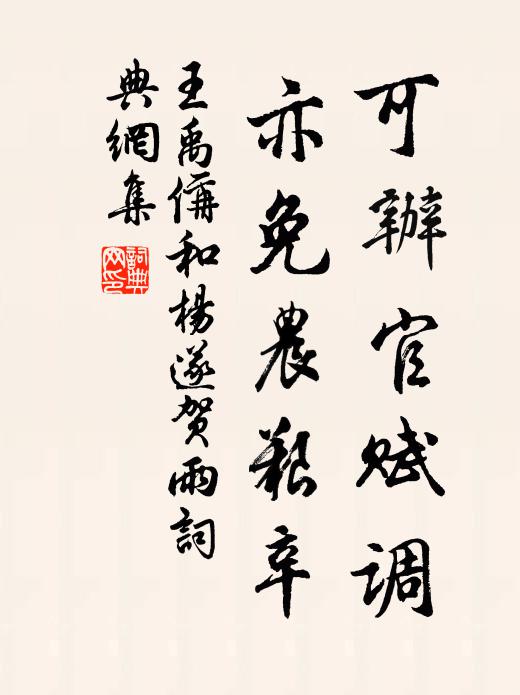 可辦官賦调
亦免農艱辛
王禹偁和楊遂贺雨詞
典網集
詞典
网印